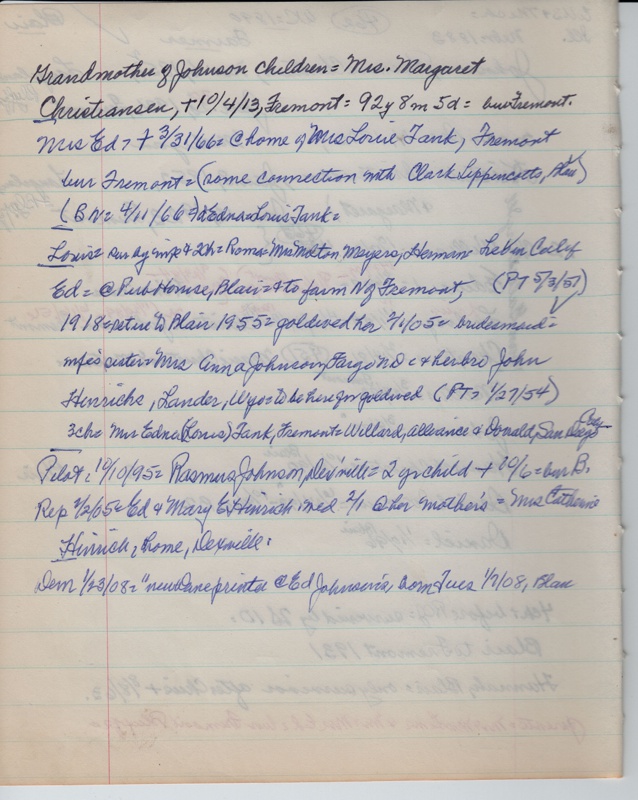 Grandmother of Johnson children = Mrs. Margaret
Christiansen, + 10/4/13, Fremont = 92y 8m 5d = bur Fremont.
Mrs Ed > + 3/31/66 = @ home of Mrs Louie Tank, Fremont
bur Fremont = (some connection with Clark Lippencotts, Blair)
(BN = 4/11/66 = Edna = Louis Tank =
Louis = sur by wife & 2ch = Roma = Mrs Melton Meyers, Herman
Ed = @ Pub House, Blair = & to farm N of Fremont, (PT 5/3/51)
1918 = retire to Blair 1955 = goldwed her 2/1/05 = bridesmaid =
wife's sister = Mrs Anna Johnson, Fargo ND & her bro John
Hinrichs, Lander, Wyo = to be here for goldwed (PT = 1/27/54)
3ch = Mrs Edna (Louis) Tank, Fremont = Willard, Alliance & Donald, San Diego
Pilot, 10/10/95 = Rasmus Johnson, Dex'ville = 2 yr child + 10/6 = bur B.
Rep 2/2/05 = Ed & Mary E Hinrich wed 2/1 @ her mother's = Mrs Catherine
Hinrich, home, Dexville.
Dem 1/23/08 = "new Dane printer @ Ed Johnson's, born Tues 1/7/08, Blair